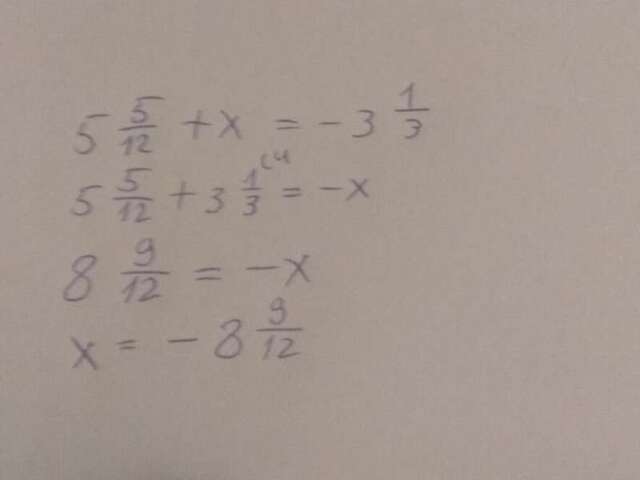 5 5/12 + x = -3 1/3
5 5/12 + 3 1/3 (4 = -x
8 9/12 = -x
x = -8 9/12